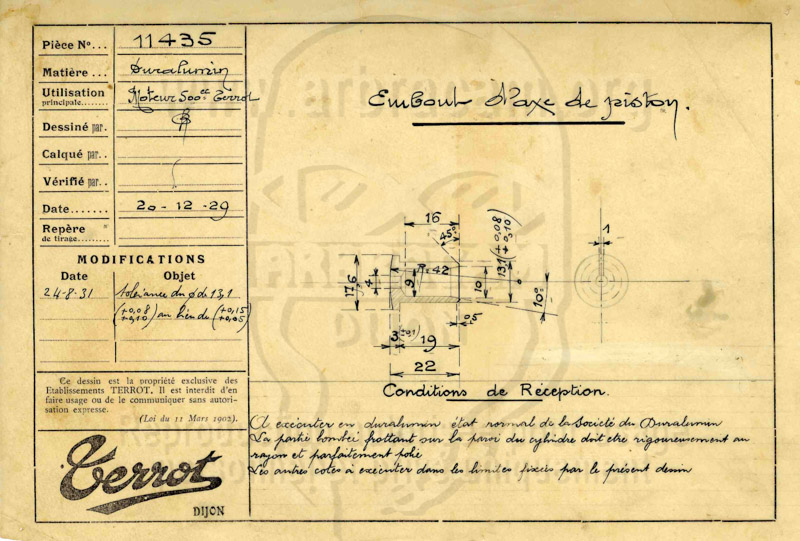 Pièce No... 11435
Matière ... Duralumin
Utilisation principale........ Moteur 500cc Terrot
Dessiné par.
Calqué par..
Vérifié par..
Date....... 20-12-29
Repère de tirage........
MODIFICATIONS
Date Objet
24-8-31 tolérance du ø de 13,1
(+0,08 +0,10) au lieu de (+0,15 +0,05)
Ce dessin est la propriété exclusive des
Etablissements TERROT. Il est interdit d'en
faire usage ou de le communiquer sans autori-
sation expresse.
(Loi du 11 Mars 1902).
Terrot
DIJON
Embout d'axe de piston.
16
45°
13,1 (+0,08 +0,10)
1
17,6
4
9
42
10
10°
3
19
0,5
22
Conditions de Réception.
A exécuter en duralumin état normal de la Société du Duralumin
La partie bombée frottant sur la paroi du cylindre doit etre rigoureusement au
rayon et parfaitement polie
Les autres cotes à exécuter dans les limites fixées par le présent dessin